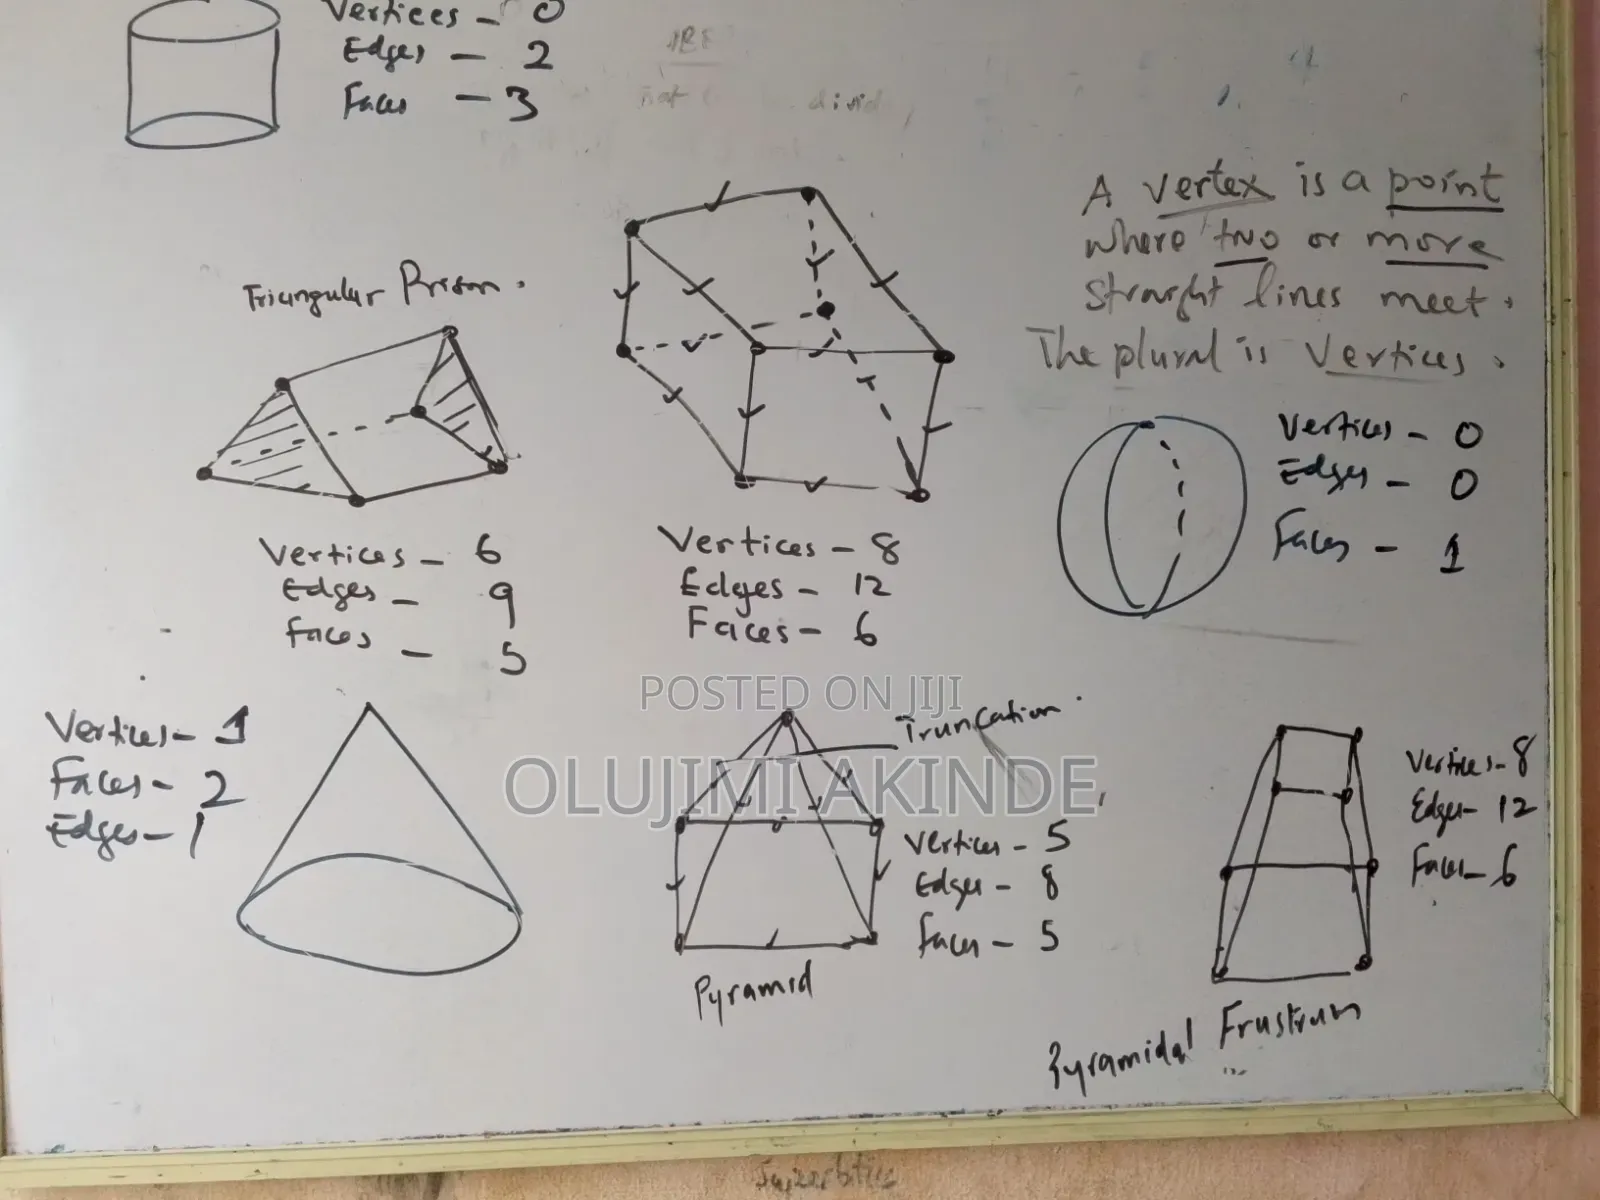 Vertices - 0
Edges - 2
Faces - 3
A vertex is a point
where two or more
straight lines meet.
The plural is Vertices.
Triangular Prism.
Vertices - 6
Edges - 9
faces - 5
Vertices - 8
Edges - 12
Faces - 6
Vertices - 0
Edges - 0
Faces - 1
POSTED ON JIJI
OLUJIMI AKINDE
Vertices - 1
Faces - 2
Edges - 1
Truncation
Vertices - 5
Edges - 8
faces - 5
Pyramid
Vertices - 8
Edges - 12
Faces - 6
Pyramidal Frustrum